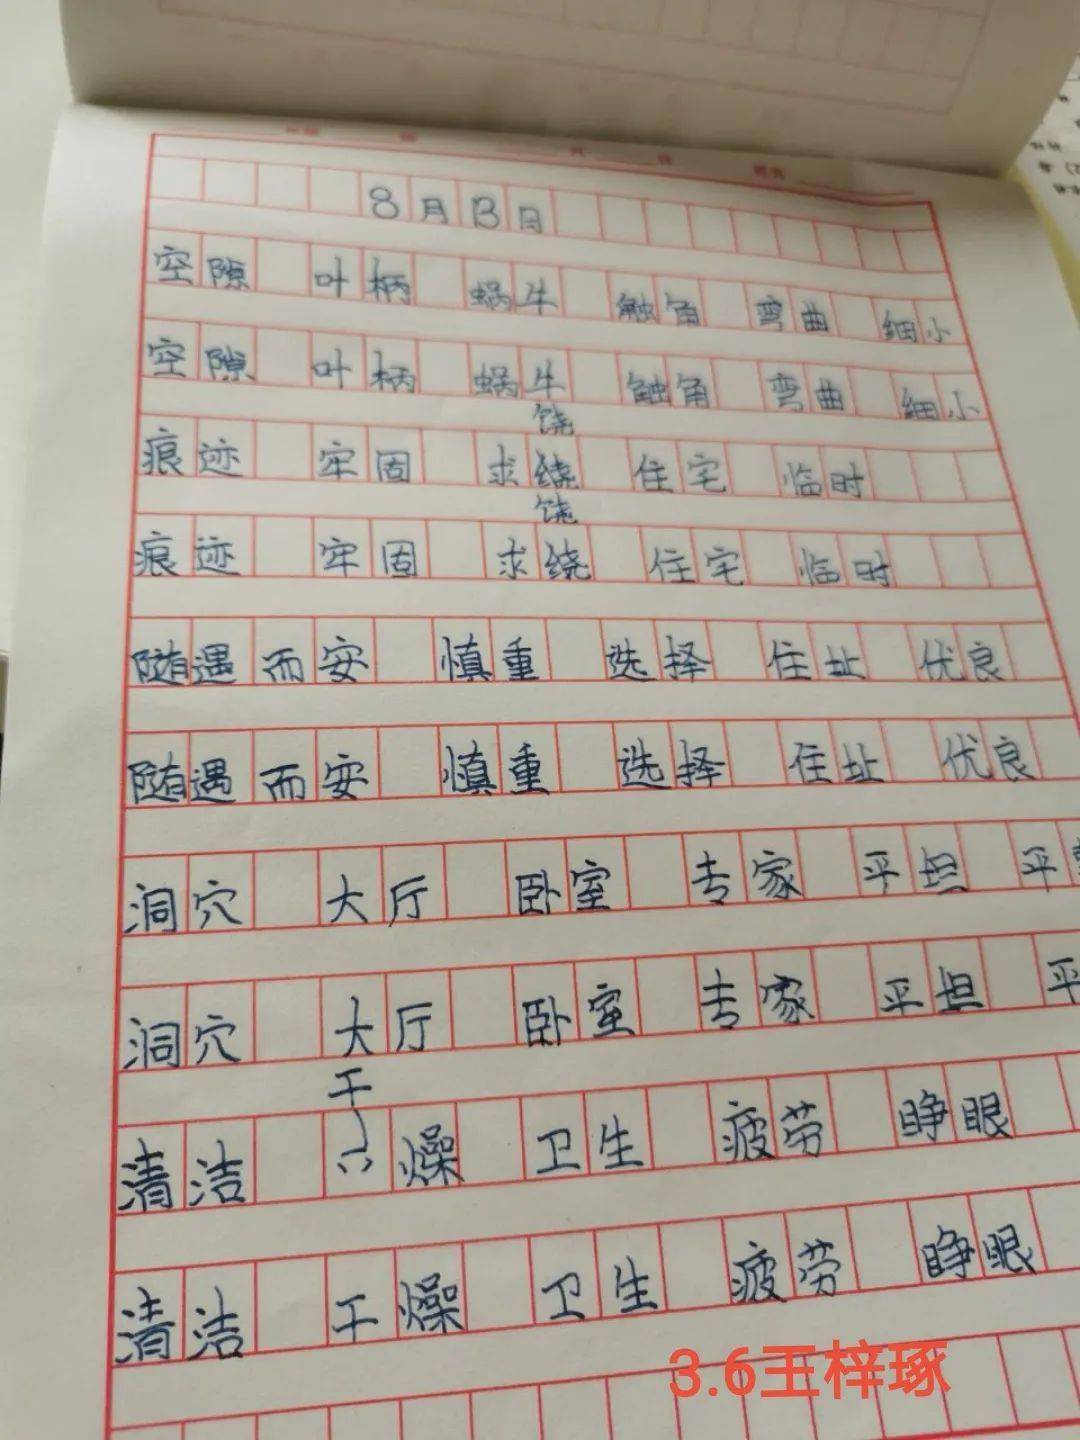 8月13日
空隙 叶柄 蜗牛 触角 弯曲 细小
空隙 叶柄 蜗牛 触角 弯曲 细小
饶
痕迹 牢固 求绕 住宅 临时
饶
痕迹 牢固 求绕 住宅 临时
随遇而安 慎重 选择 住址 优良
随遇而安 慎重 选择 住址 优良
洞穴 大厅 卧室 专家 平坦 平
洞穴 大厅 卧室 专家 平坦 平
干
清洁 燥 卫生 疲劳 睁眼
清洁 干燥 卫生 疲劳 睁眼
3.6王梓琢